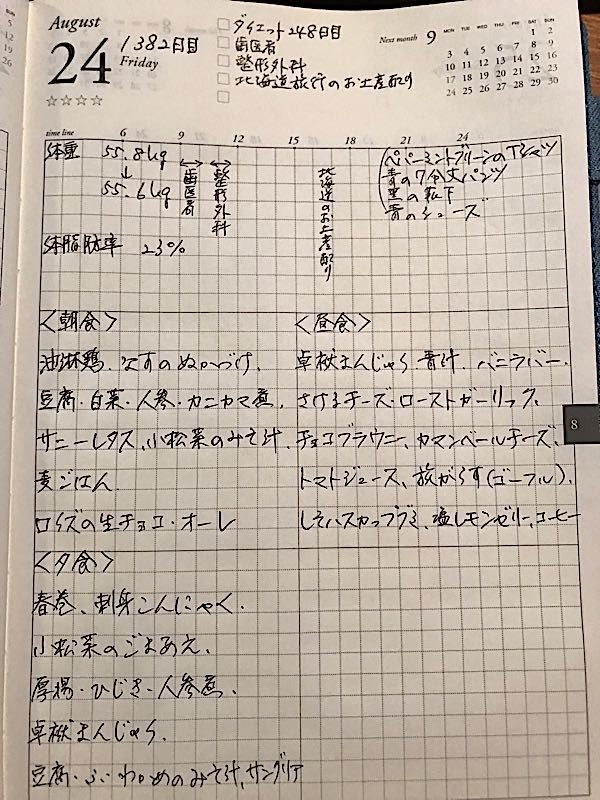 August
24
Friday
1382日目
ダイエット248日目
歯医者
整形外科
北海道旅行のお土産配り
Next month 9
MON TUE WED THU FRI SAT SUN
1 2
3 4 5 6 7 8 9
10 11 12 13 14 15 16
17 18 19 20 21 22 23
24 25 26 27 28 29 30
☆☆☆☆
time line 6 9 12 15 18 21 24
体重 55.8kg
↓
55.6kg
体脂肪率 23%
歯医者
整形外科
北海道のお土産配り
(ペパーミントグリーンのTシャツ
青の7分丈パンツ
黒の靴下
青のシューズ)
<朝食>
油淋鶏、なすのぬかづけ、
豆腐・白菜・人参・カニカマ煮、
サニーレタス、小松菜のみそ汁、
麦ごはん
ロイズの生チョコ・オーレ
<昼食>
卓袱まんじゅう、青汁、バニラバー、
さけるチーズ・ローストガーリック、
チョコブラウニー、カマンベールチーズ、
トマトジュース、旅がらす(ゴーフル)、
しそハスカップグミ、塩レモンゼリー、コーヒー
<夕食>
春巻、刺身こんにゃく、
小松菜のごまあえ、
厚揚・ひじき・人参煮、
卓袱まんじゅう、
豆腐・ふ・わかめのみそ汁、サングリア
8